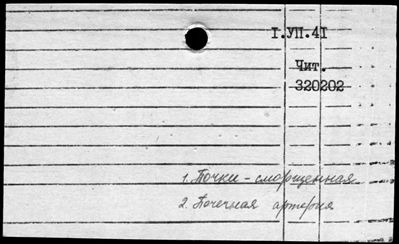 I.УП.41
Чит.
320202
1. Почки - сморщенная
2. Почечная артерия